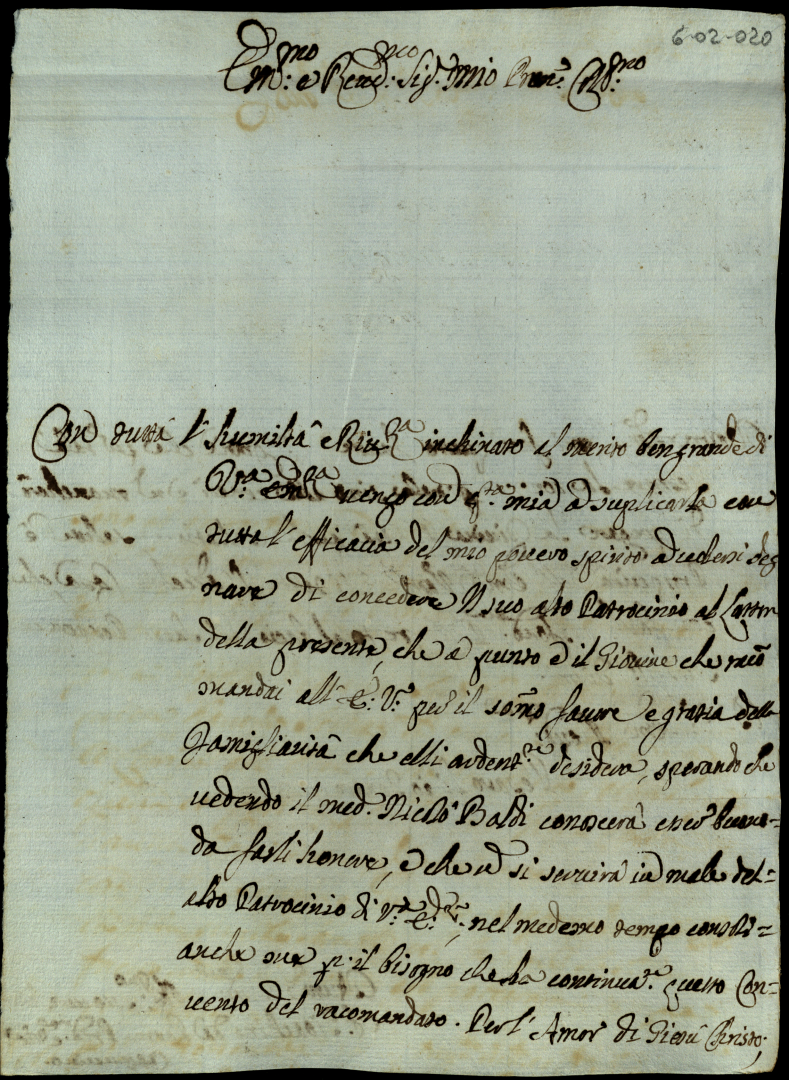 6-02-020
Em.mo e Reved. Sig. mio Pron. Col.mo
Con tutta l'humiltà e Riu.za inchinato al merito ben grande di
V.a Em.za vengo con q.ta mia a suplicarla con
tutta l'efficacia del mio povero spirito a volersi deg
nare di concedere il suo alto Patrocinio al Lator
della presente, che a punto è il Giovine che raco
mandai all' E. V. per il somo favore e gratia della
famigliarità che elli ardent.te desidera, sperando che
vedendo il med. Nicolò Baldi conoscerà esser buono
da farli honore, e che no si servirà in male del=
alto Patrocinio di V.a E.za, nel medemo tempo consoli=
anche me p. il bisogno che ha continua.te questo Con=
vento del racomandato. Per l'Amor di Giesù Christo,